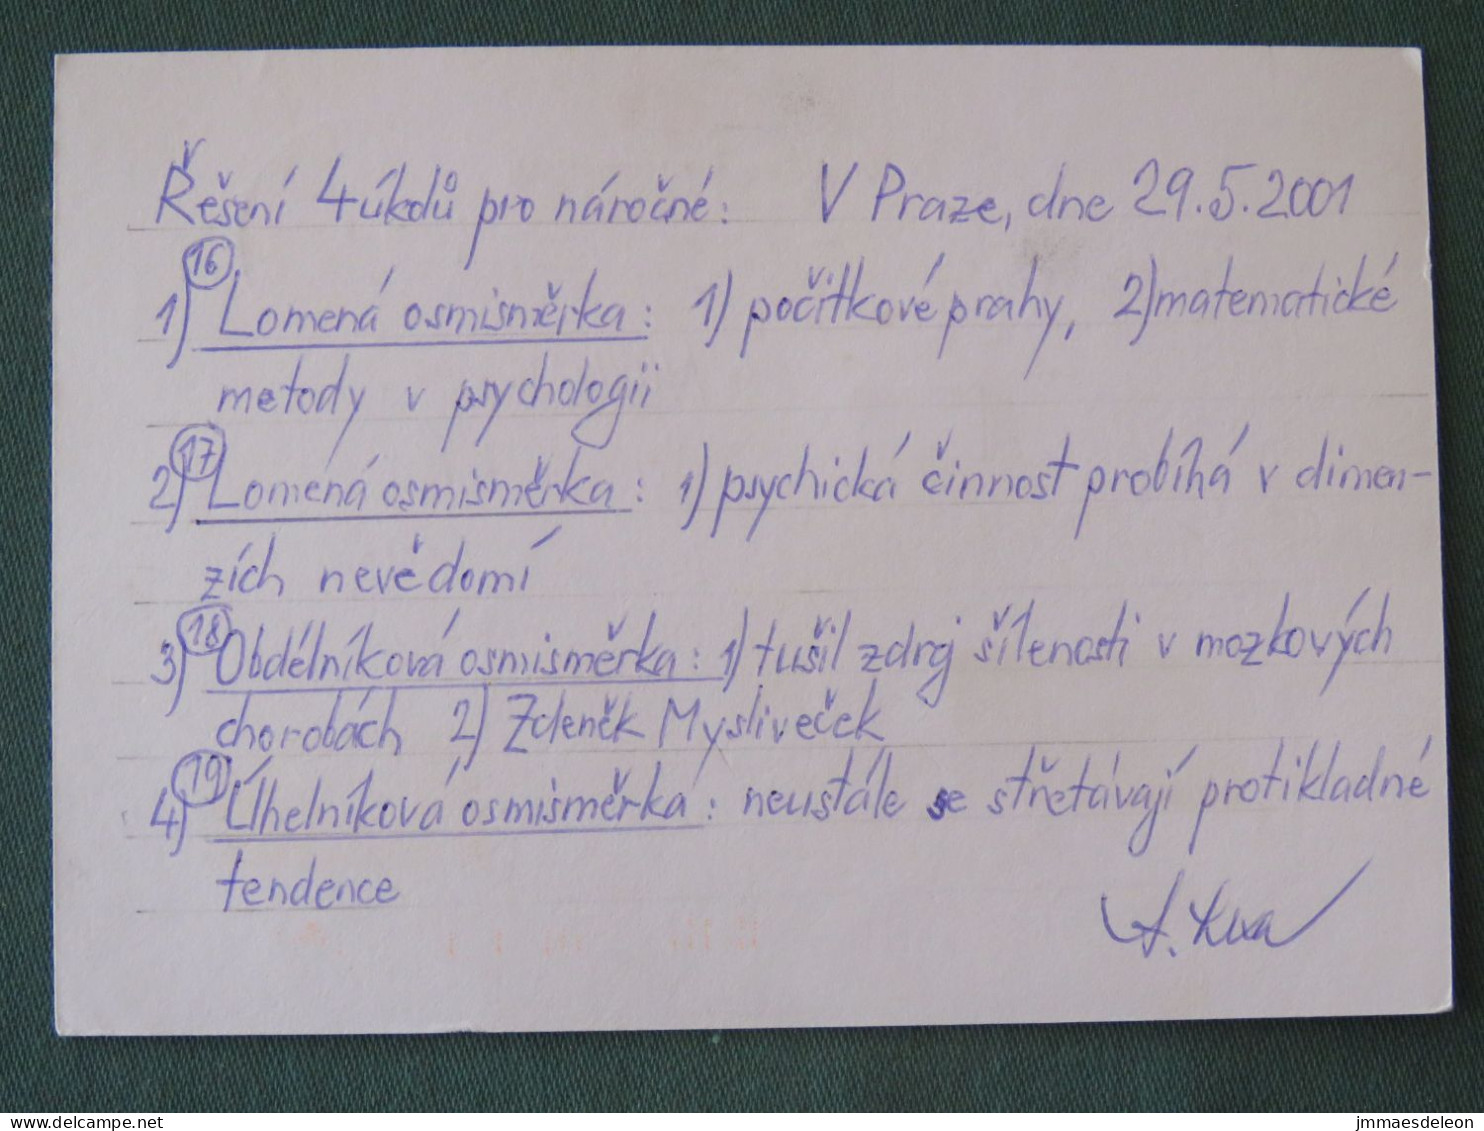 Řešení 4 úkdů pro náročné: V Praze, dne 29.5.2001
1) 16 Lomená osmisměrka: 1) počitkové prahy, 2) matematické
metody v psychologii
2) 17 Lomená osmisměrka: 1) psychická činnost probíhá v dimen-
zích nevědomí
3) 18 Obdélníková osmisměrka: 1) tušil zdroj šílenosti v mozkových
chorobách 2) Zdeněk Mysliveček
4) 19 Úhelníková osmisměrka: neustále se střetávají protikladné
tendence
delcampe.net
jmmaesdeleon